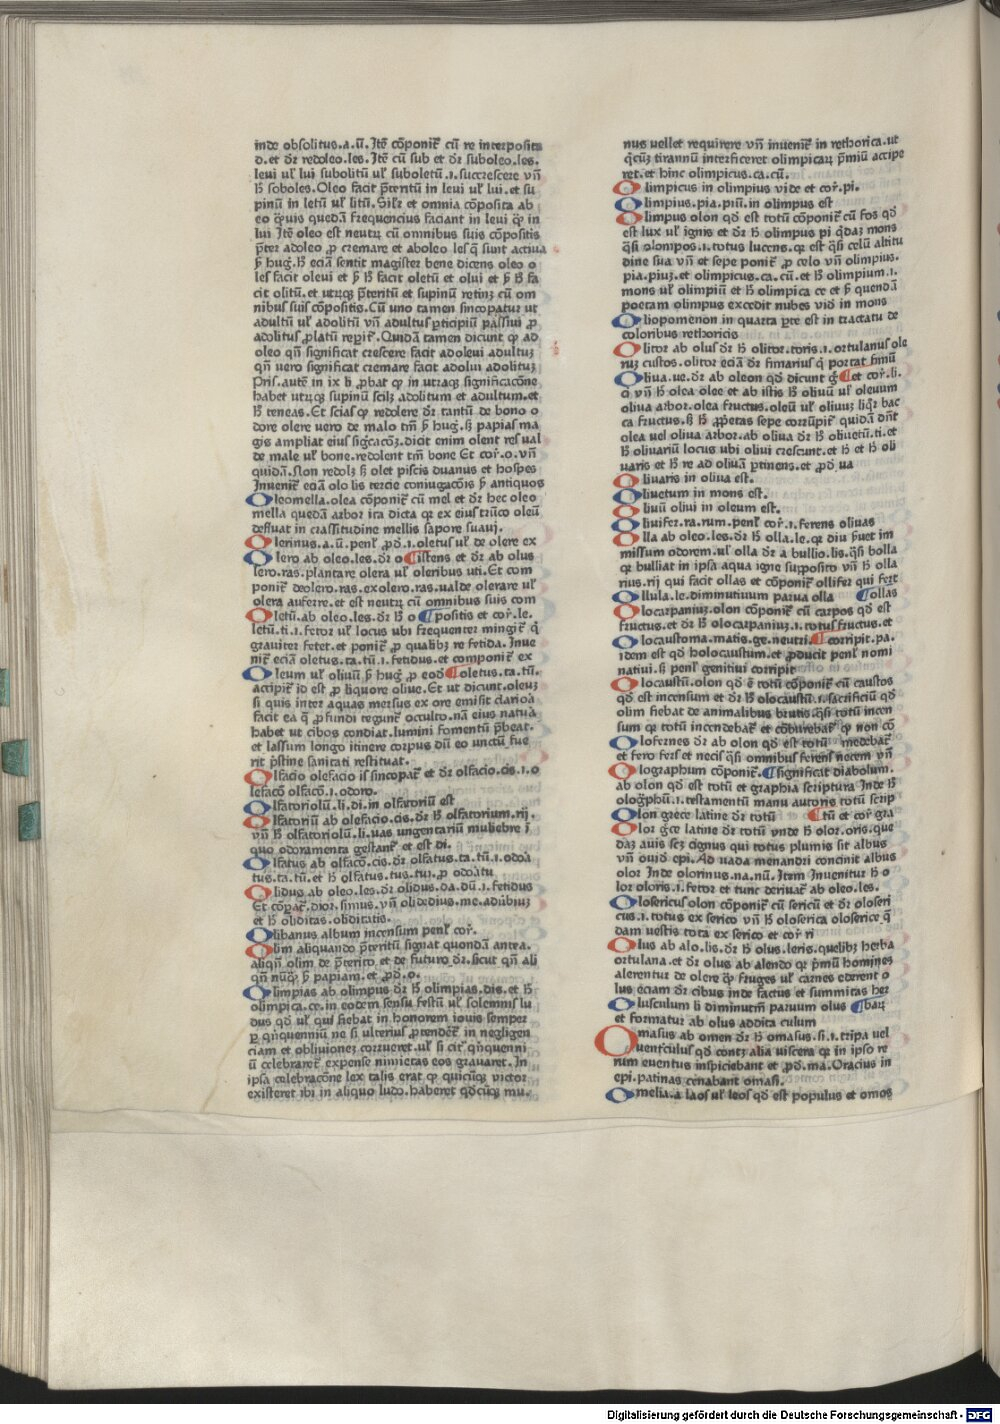 inde obsolitus.a.ū. Itē cōponit᷑ cū re interposita
d.et dr̄ redoleo.les. Itē cū sub et dr̄ suboleo.les.
leui ul᷑ lui subolitū ul᷑ suboletū.i.succrescere vn̄
h̄ soboles. Oleo facit p̄teritū in leui ul᷑ lui.et su
pinū in letū ul᷑ litū. Sil᷑r et omnia cōposita ab
eo qᷓuis quedā frequencius faciant in leui qᷓ in
lui Itē oleo est neutꝝ cū omnibus suis cōpositis
p̄ter adoleo ꝓ cremare et aboleo les q̄ sunt actiua
ẜm hug. H̄ eciā sentit magister bene dicens oleo o
les facit oleui et ẜm h̄ facit oletū et olui et ẜm h̄ fa
cit olitū.et utrūqꝫ p̄teritū et supinū retinꝫ cū om
nibus suis cōpositis. Cū uno tamen sincopatur ut
adultū ul᷑ adolitū vn̄ adultus ꝑticipiū passiui ꝓ
adolitus ꝓlatū reꝑit᷑. Quidā tamen dicunt qꝫ ad
oleo qn̄ significat crescere facit adoleui adultuꝫ
qn̄ uero significat cremare facit adolui adolituꝫ
Pris. autē in ix li ꝓbat qꝫ in utraqꝫ significacōne
habet utrūqꝫ supinū scilꝫ adolitum et adultum.et
h̄ teneas. Et scias qꝫ redolere dr̄ tantū de bono o
dore olere vero de malo tm̄ ẜm hug.sꝫ papias ma
gis ampliat eius sigᷓcacōꝫ. dicit enim olent res ual
de male ul᷑ bone.redolent tm̄ bone Et cor᷑.o.vn̄
quidā. Non redolꝫ sꝫ olet piscis duanus et hospes
Inuenit᷑ eciā olo lis tercie coniugacōis ẜm antiquos
Oleomella.olea cōponit᷑ cū mel et dr̄ hec oleo
mella quedā arbor ita dicta qꝛ ex eius trūco oleū
deffuat in crassitudine mellis sapore suaui.
Olerinus.a.ū. penl᷑ ꝓd.i.oletus ul᷑ de olere ex
Olero ab oleo.les.dr̄ o ¶ istens et dr̄ ab olus
lero.ras.plantare olera ul᷑ oleribus uti. Et com
ponit᷑ deolero.ras.exolero.ras.ualde olerare ul᷑
olera auferre.et est neutꝝ cū omnibus suis com
Oletū.ab oleo.les.dr̄ h̄ o ¶ positis et cor᷑.le.
letū.ti.i.fetor ul᷑ locus ubi frequenter mingit᷑ qᷓ
grauiter fetet.et ponit᷑ ꝓ qualibꝫ re fetida. Inue
nit᷑ eciā oletus.ta.tū.i.fetidus.et componit᷑ ex
Oleum ul᷑ oliuū ẜm hug᷑ ꝓ eod̄ ¶ oletus.ta.tū.
accipit᷑ id est ꝓ liquore oliue. Et ut dicunt.oleuꝫ
si quis inter aquas mersus ex ore emisit clariora
facit ea q̄ ꝓfundi regunt᷑ occulto.nā eius naturā
habet ut cibos condiat.lumini fomentū p̄beat.
et lassum longo itinere corpus dū eo unctū fue
rit p̄stine sanitati restituat.
Olfacio olefacio is sincopat᷑ et dr̄ olfacio.cis.i.o
lefacō olfacō.i.odoro.
Olfatoriolū.li.di.in olfatoriū est
Olfatoriū ab olefacio.cis.dr̄ h̄ olfatorium.rij.
vn̄ h̄ olfatoriolū.li.uas ungentariū muliebre ī
quo odoramenta gestant᷑ et est di.
Olfatus ab olfacō.cis.dr̄ olfatus.ta.tū.i.odoā
tus.ta.tū.et h̄ olfatus.tus.tui.ꝓ odoātu
Olidus ab oleo.les.dr̄ olidus.da.dū.i.fetidus
Et cōꝑat᷑.dior.simus.vn̄ olide.dius.me.aduībiuꝫ
et h̄ oliditas.obditatis.
Olibanus album incensum penl᷑ cor᷑.
Olim aliquando p̄teritū signat quondā antea.
aliqn̄ olim de p̄terito.et de futuro dr̄.sicut qn̄ ali
qn̄ nūqᷓ ẜm papiam.et ꝓd᷑.o.
Olimpias ab olimpus dr̄ h̄ olimpias.dis.et h̄
olimpica.ce.in eodem sensu festū ul᷑ solemnis lu
dus qd᷑ ul᷑ qui fiebat in honorem iouis semper
ꝑ qn̄quenniū ne si ulterius ꝓtendēt᷑ in negligen
ciam et obliuionez corrueret.ul᷑ si cit᷑ qn̄quenni
ū celebraret᷑ expense nimietas eos grauaret. In
ipsa celebracōne lex talis erat qꝫ quicūqꝫ victor
existeret ibi in aliquo ludo.haberet qd᷑cūqꝫ mu.
nus uellet requirere vn̄ inuenit᷑ in rethorica.ut
qͥcūqꝫ tirannū interficeret olimpicaꝝ p̄miū accipe
ret.et hinc olimpicus.ca.cū.
Olimpicus in olimpius vide et cor᷑.pi.
Olimpius.pia.piū.in olimpus est
Olimpus olon qd᷑ est totū cōponit᷑ cū fos qd᷑
est lux ul᷑ ignis et dr̄ h̄ olimpus pi qͥdaꝫ mons
qͣsi olonipos.i.totus lucens.qꝛ est qͣsi celū altitu
dine sua vn̄ et sepe ponit᷑ ꝓ celo vn̄ olimpius.
pia.piuꝫ.et olimpicus.ca.cū.et h̄ olimpium.i.
mons ul᷑ olimpiū et h̄ olimpica ce et ẜm quendā
poetam olimpus excedit nubes vid᷑ in mons
Oliopomenon in quarta ꝑte est in tractatu de
coloribus rethoricis
Olitor ab olus dr̄ h̄ olitor.toris.i.ortulanus ole
ruꝫ custos.olitor eciā dr̄ fimarius qͥ portat fimū
Oliua.ue.dr̄ ab oleon qd᷑ dicunt gᷓ ¶ et cor᷑.li.
o vn̄ h̄ olea olee et ab istis h̄ oliuū ul᷑ oleuum
oliua arbor.olea fructus.oleū ul᷑ oliuuꝫ liqͦr bac
ca fructus.sꝫ h̄ ꝓprietas sepe corrūpit᷑ quidā dn̄t
olea uel oliua arbor.ab oliua dr̄ h̄ oliuetū.ti.et
h̄ oliuariū locus ubi oliui crescunt.et h̄ et h̄ oli
uaris et h̄ re ad oliuā ꝑtinens.et ꝓd᷑ ua
Oliuaris in oliua est.
Oliuetum in mons est.
Oliuū oliui in oleum est.
Oliuifer.ra.rum.penl᷑ cor᷑.i.ferens oliuas
Olla ab oleo.les.dr̄ h̄ olla.le.qꝛ diu fuet im
missum odorem.ul᷑ olla dr̄ a bullio.lis.qͣsi bolla
qꝛ bulliat in ipsa aqua igne supposito vn̄ h̄ olla
rius.rij qui facit ollas et cōponit᷑ ollifer qui fert
Ollula.le.diminutiuum parua olla ¶ ollas
Olocarpaniuꝫ.olon cōponit᷑ cū carpos qd᷑ est
fructus.et dr̄ h̄ olocarpaniuꝫ.i.totus fructus.et
Olocaustoma.matis.ge.neutri. ¶ corripit.pa.
idem est qd᷑ holocaustum.et ꝓducit penl᷑ nomi
natiui.sꝫ penl᷑ genitiui corripit
Olocaustū.olon qd᷑ ē totū cōponit᷑ cū caustos
qd᷑ est incensum et dr̄ h̄ olocaustū.i.sacrificiū qd᷑
olim fiebat de animalibus brutis.qͣsi totū incen
sum qꝛ totū incendebat᷑ et cōburebat᷑ qꝫ non cō
Olofernes dr̄ ab olon qd᷑ est totū medebat᷑
et fero fers et necis qͣsi omnibus ferens necem vn̄
Olographum cōponit᷑. ¶ significat diabolum.
ab olon qd᷑ est totū et graphia scriptura Inde h̄
olog᷑phū.i.testamentū manu autoris totū scrip
Olon grece latine dr̄ totū ¶ tū et cor᷑ gra
Olor gᷓce latine dr̄ totū vnde h̄ olor.oris.que
daꝫ auis scꝫ cignus qui totus plumis sit albus
vn̄ ouid᷑ epi. Ad uada menandri concinit albus
olor Inde olorinus.na.nū. Item Inuenitur h̄ o
lor oloris.i.fetor et tunc deriuat᷑ ab oleo.les.
Olosericus olon cōponit᷑ cū sericū et dr̄ oloseri
cus.i.totus ex serico vn̄ h̄ oloserica olosericeᷓ
dam uestis tota ex serico et cor᷑ ri
Olus ab alo.lis.dr̄ h̄ olus.leris.quelibꝫ herba
ortulana.et dr̄ olus ab alendo qꝛ p̄mū homines
alerentur de olere qᷓ fruges ul᷑ carnes ederent o
lus eciam dr̄ cibus inde factus et summitas her
Olusculum li diminutm̄ paruum olus ¶ barꝝ
et formatur ab olus addita culum
Omasus ab omen dr̄ h̄ omasus.si.i.tripa uel
uentriculus qd᷑ contꝫ alia viscera qꝛ in ipso re
rum euentus inspiciebant et ꝓd᷑.ma. Oracius in
epi.patinas cenabant omasi.
Omelia.a laos ul᷑ leos qd᷑ est populus et omos
Digitalisierung gefördert durch die Deutsche Forschungsgemeinschaft - DFG